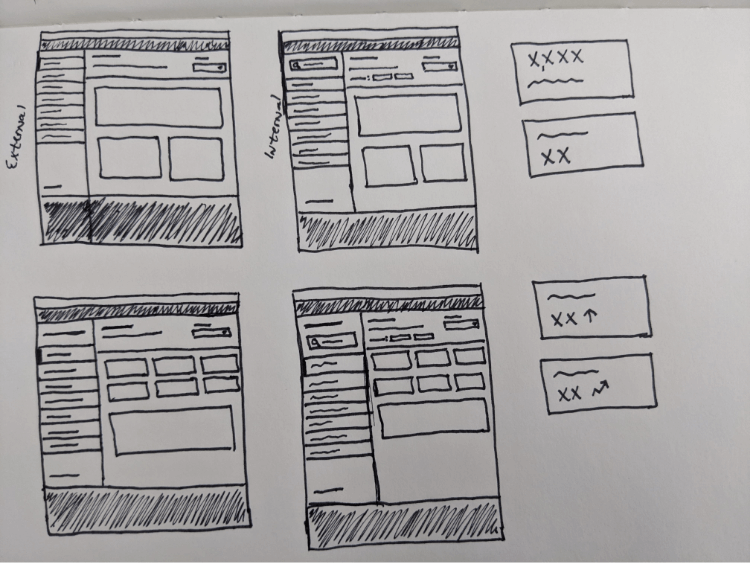 External
Internal
X,XXX
XX
XX ↑
XX